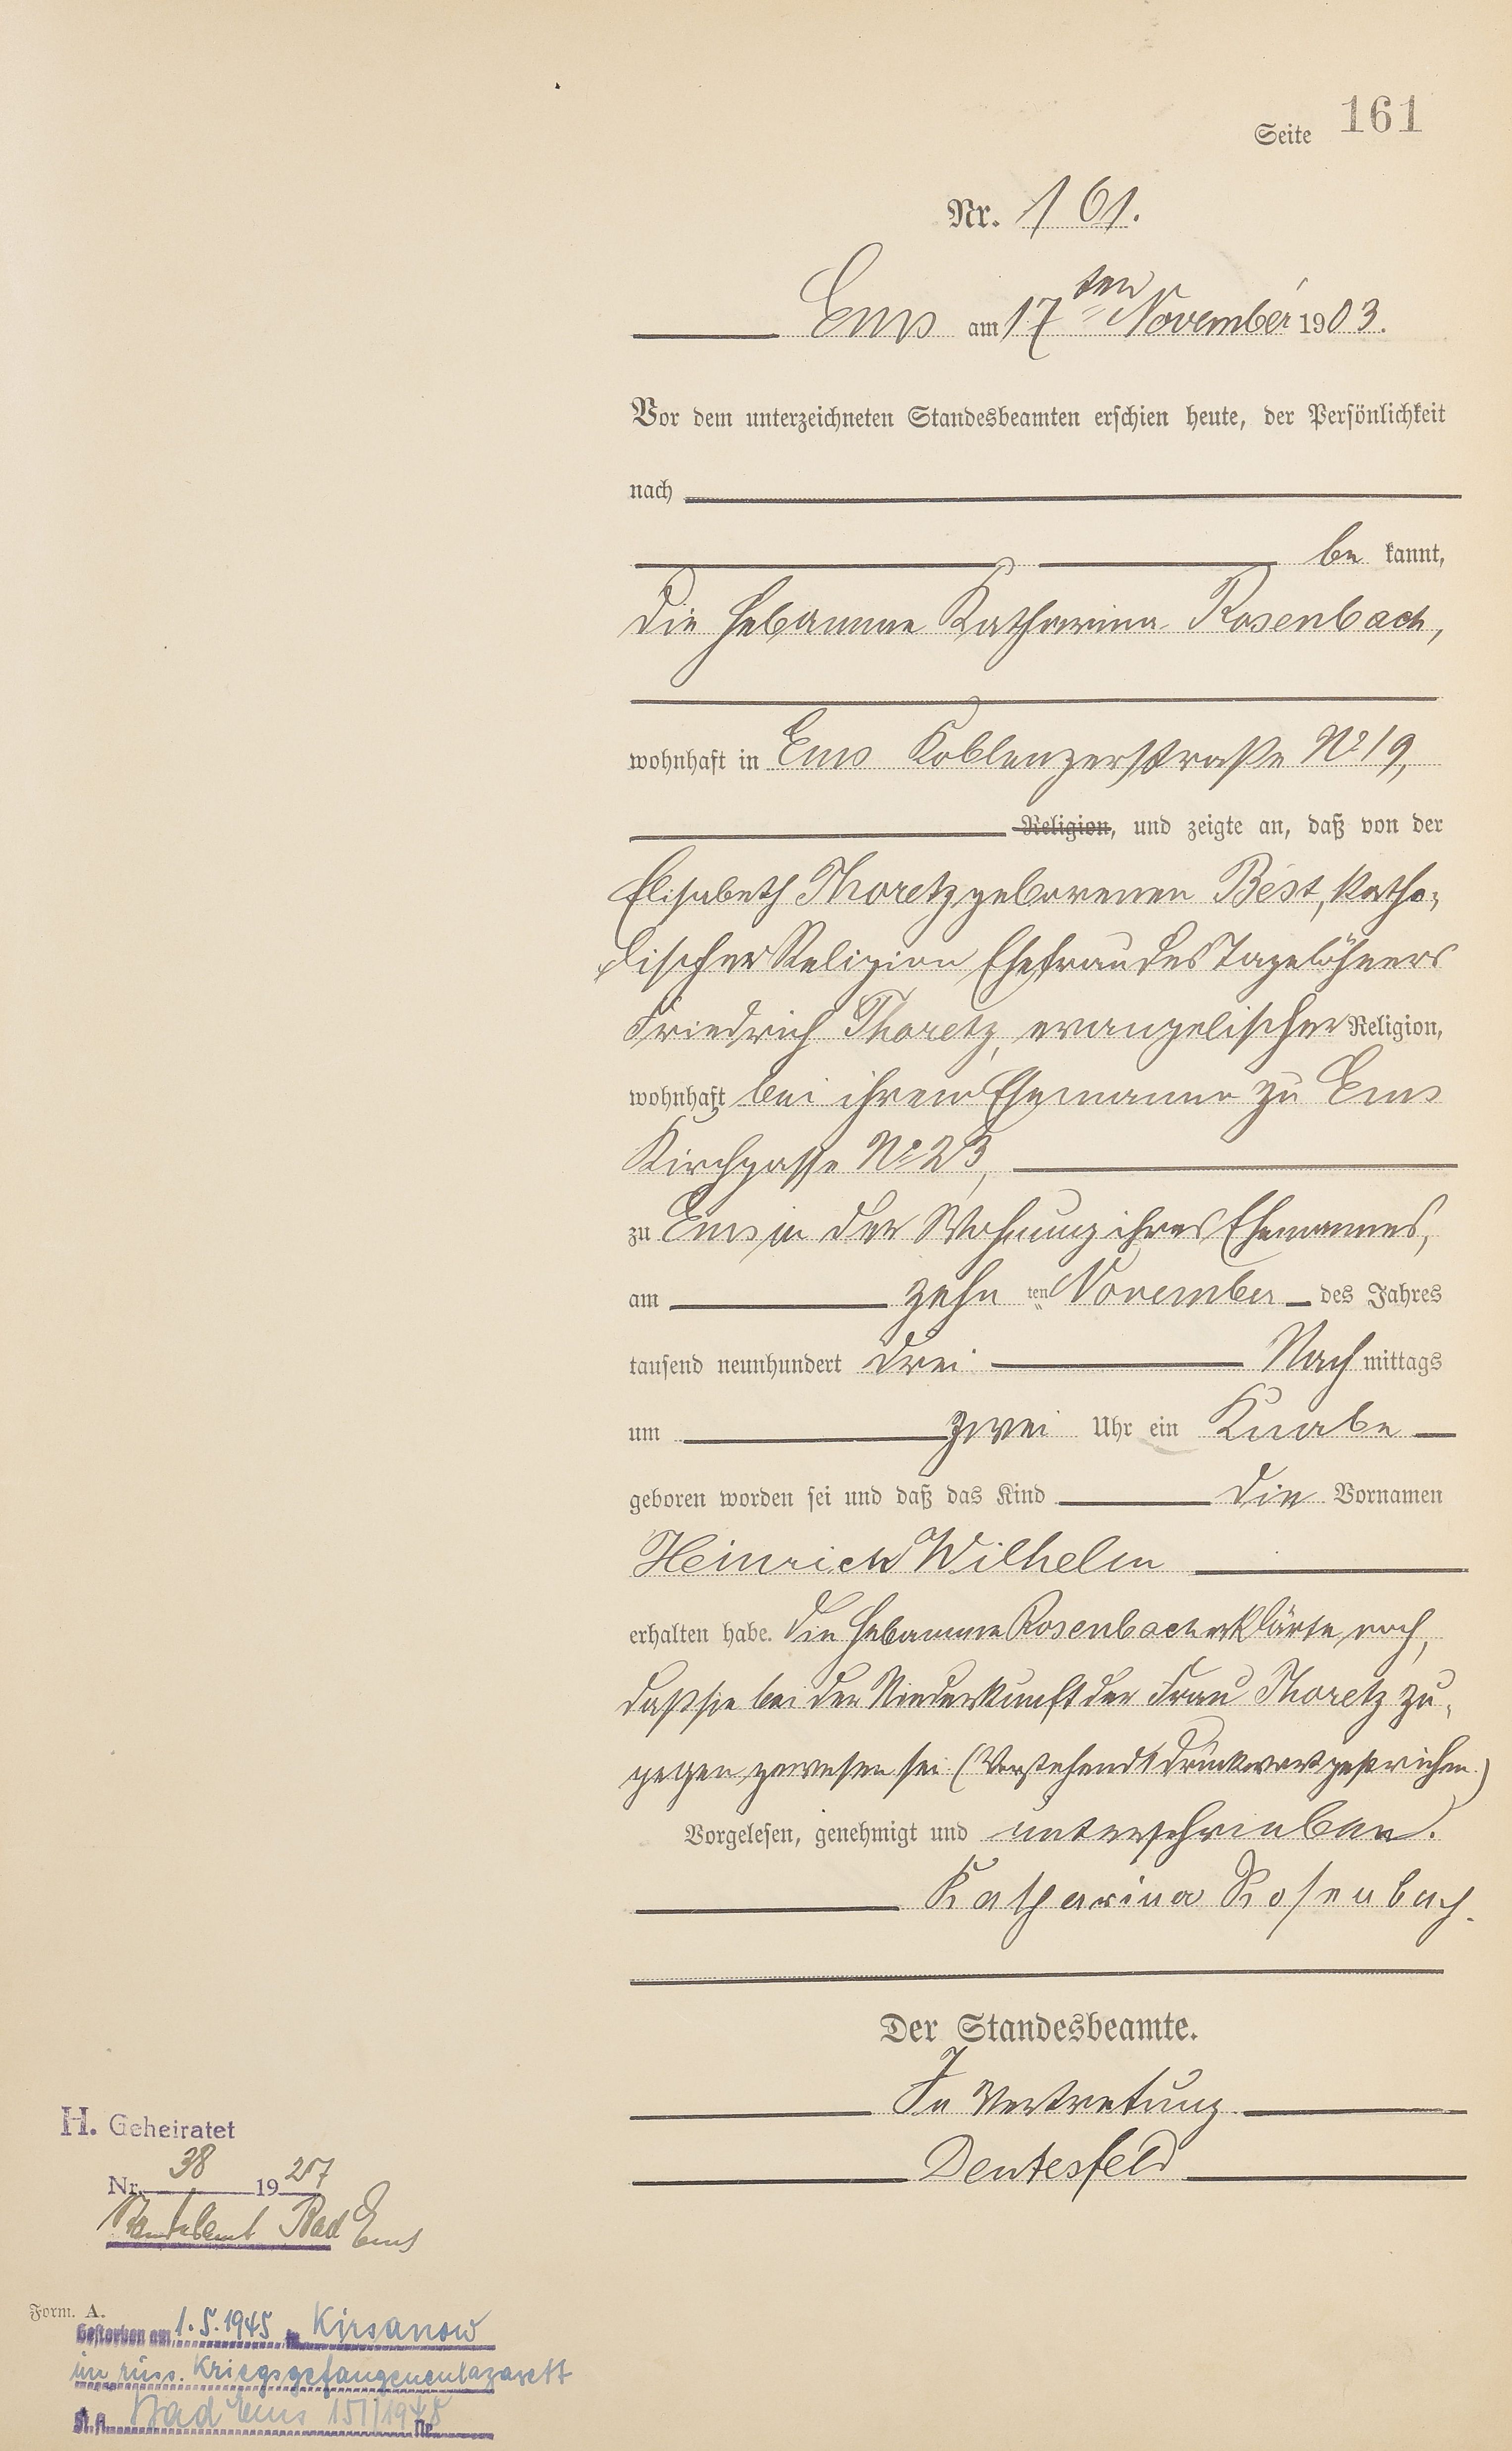 Seite 161
Nr. 161.
Ems am 17ten November 1903.
Vor dem unterzeichneten Standesbeamten erschien heute, der Persönlichkeit
nach
be kannt,
die Hebamme Katharina Rosenbach,
wohnhaft in Ems Koblenzerstraße No 19,
Religion, und zeigte an, daß von der
Elisabeth Thoretz geborenen Best, katho-
lischer Religion Ehefrau des Tagelöhners
Friedrich Thoretz, evangelischer Religion,
wohnhaft bei ihrem Ehemanne zu Ems
Kirchgasse No 23,
zu Ems in der Wohnung ihres Ehemannes,
am zehn ten November des Jahres
tausend neunhundert drei Nach mittags
um zwei Uhr ein Knabe
geboren worden sei und daß das Kind die Vornamen
Heinrich Wilhelm
erhalten habe. Die Hebamme Rosenbach erklärte noch,
daß sie bei der Niederkunft der Frau Thoretz zu-
gegen gewesen sei (Vorstehend 1 Druckwort gestrichen.)
Vorgelesen, genehmigt und unterschrieben.
Katharina Rosenbach.
Der Standesbeamte.
In Vertretung
Dentesfeld
H. Geheiratet
Nr. 38 1927
Standesamt Bad Ems
Form. A.
Gestorben am 1.5.1945 in Kirsanow
im russ. Kriegsgefangenenlazarett
St. A. Bad Ems 151/1948 Nr.